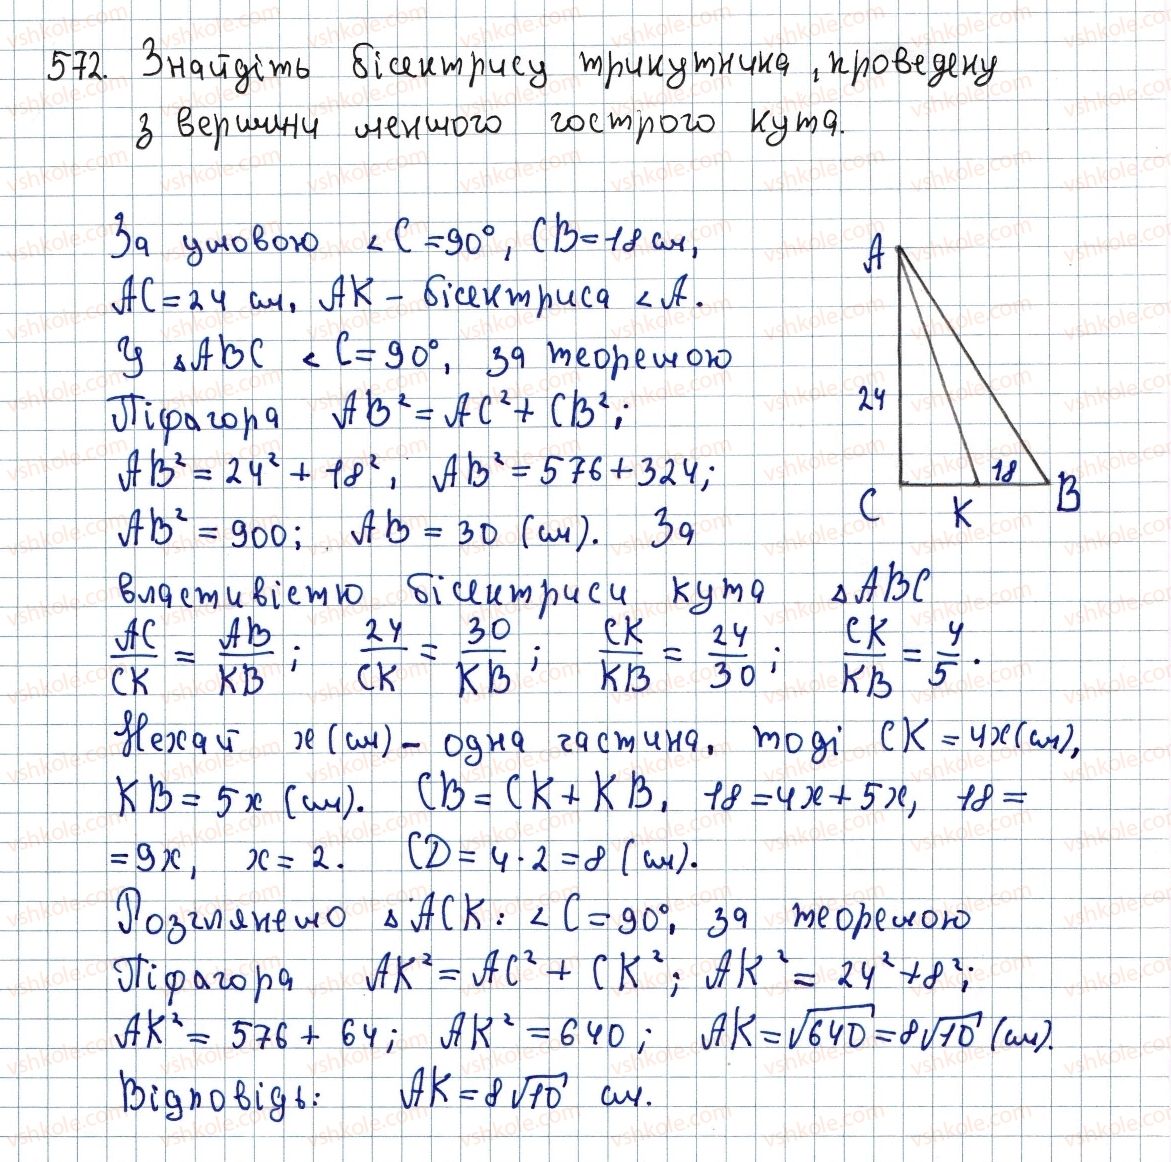 572. Знайдіть бісектрису трикутника, проведену
з вершини меншого гострого кута.
За умовою ∠C = 90°, CB = 18 см,
AC = 24 см, AK - бісектриса ∠A.
У △ABC ∠C = 90°, за теоремою
Піфагора AB² = AC² + CB²;
AB² = 24² + 18², AB² = 576 + 324;
AB² = 900; AB = 30 (см). За
властивістю бісектриси кута △ABC
AC/CK = AB/KB; 24/CK = 30/KB; CK/KB = 24/30; CK/KB = 4/5.
Нехай x (см) - одна частина, тоді CK = 4x (см),
KB = 5x (см). CB = CK + KB, 18 = 4x + 5x, 18 =
= 9x, x = 2. CD = 4 · 2 = 8 (см).
Розглянемо △ACK: ∠C = 90°, за теоремою
Піфагора AK² = AC² + CK²; AK² = 24² + 8²;
AK² = 576 + 64; AK² = 640; AK = √640 = 8√10 (см).
Відповідь: AK = 8√10 см.
A
24
18
C K B
vshkole.com